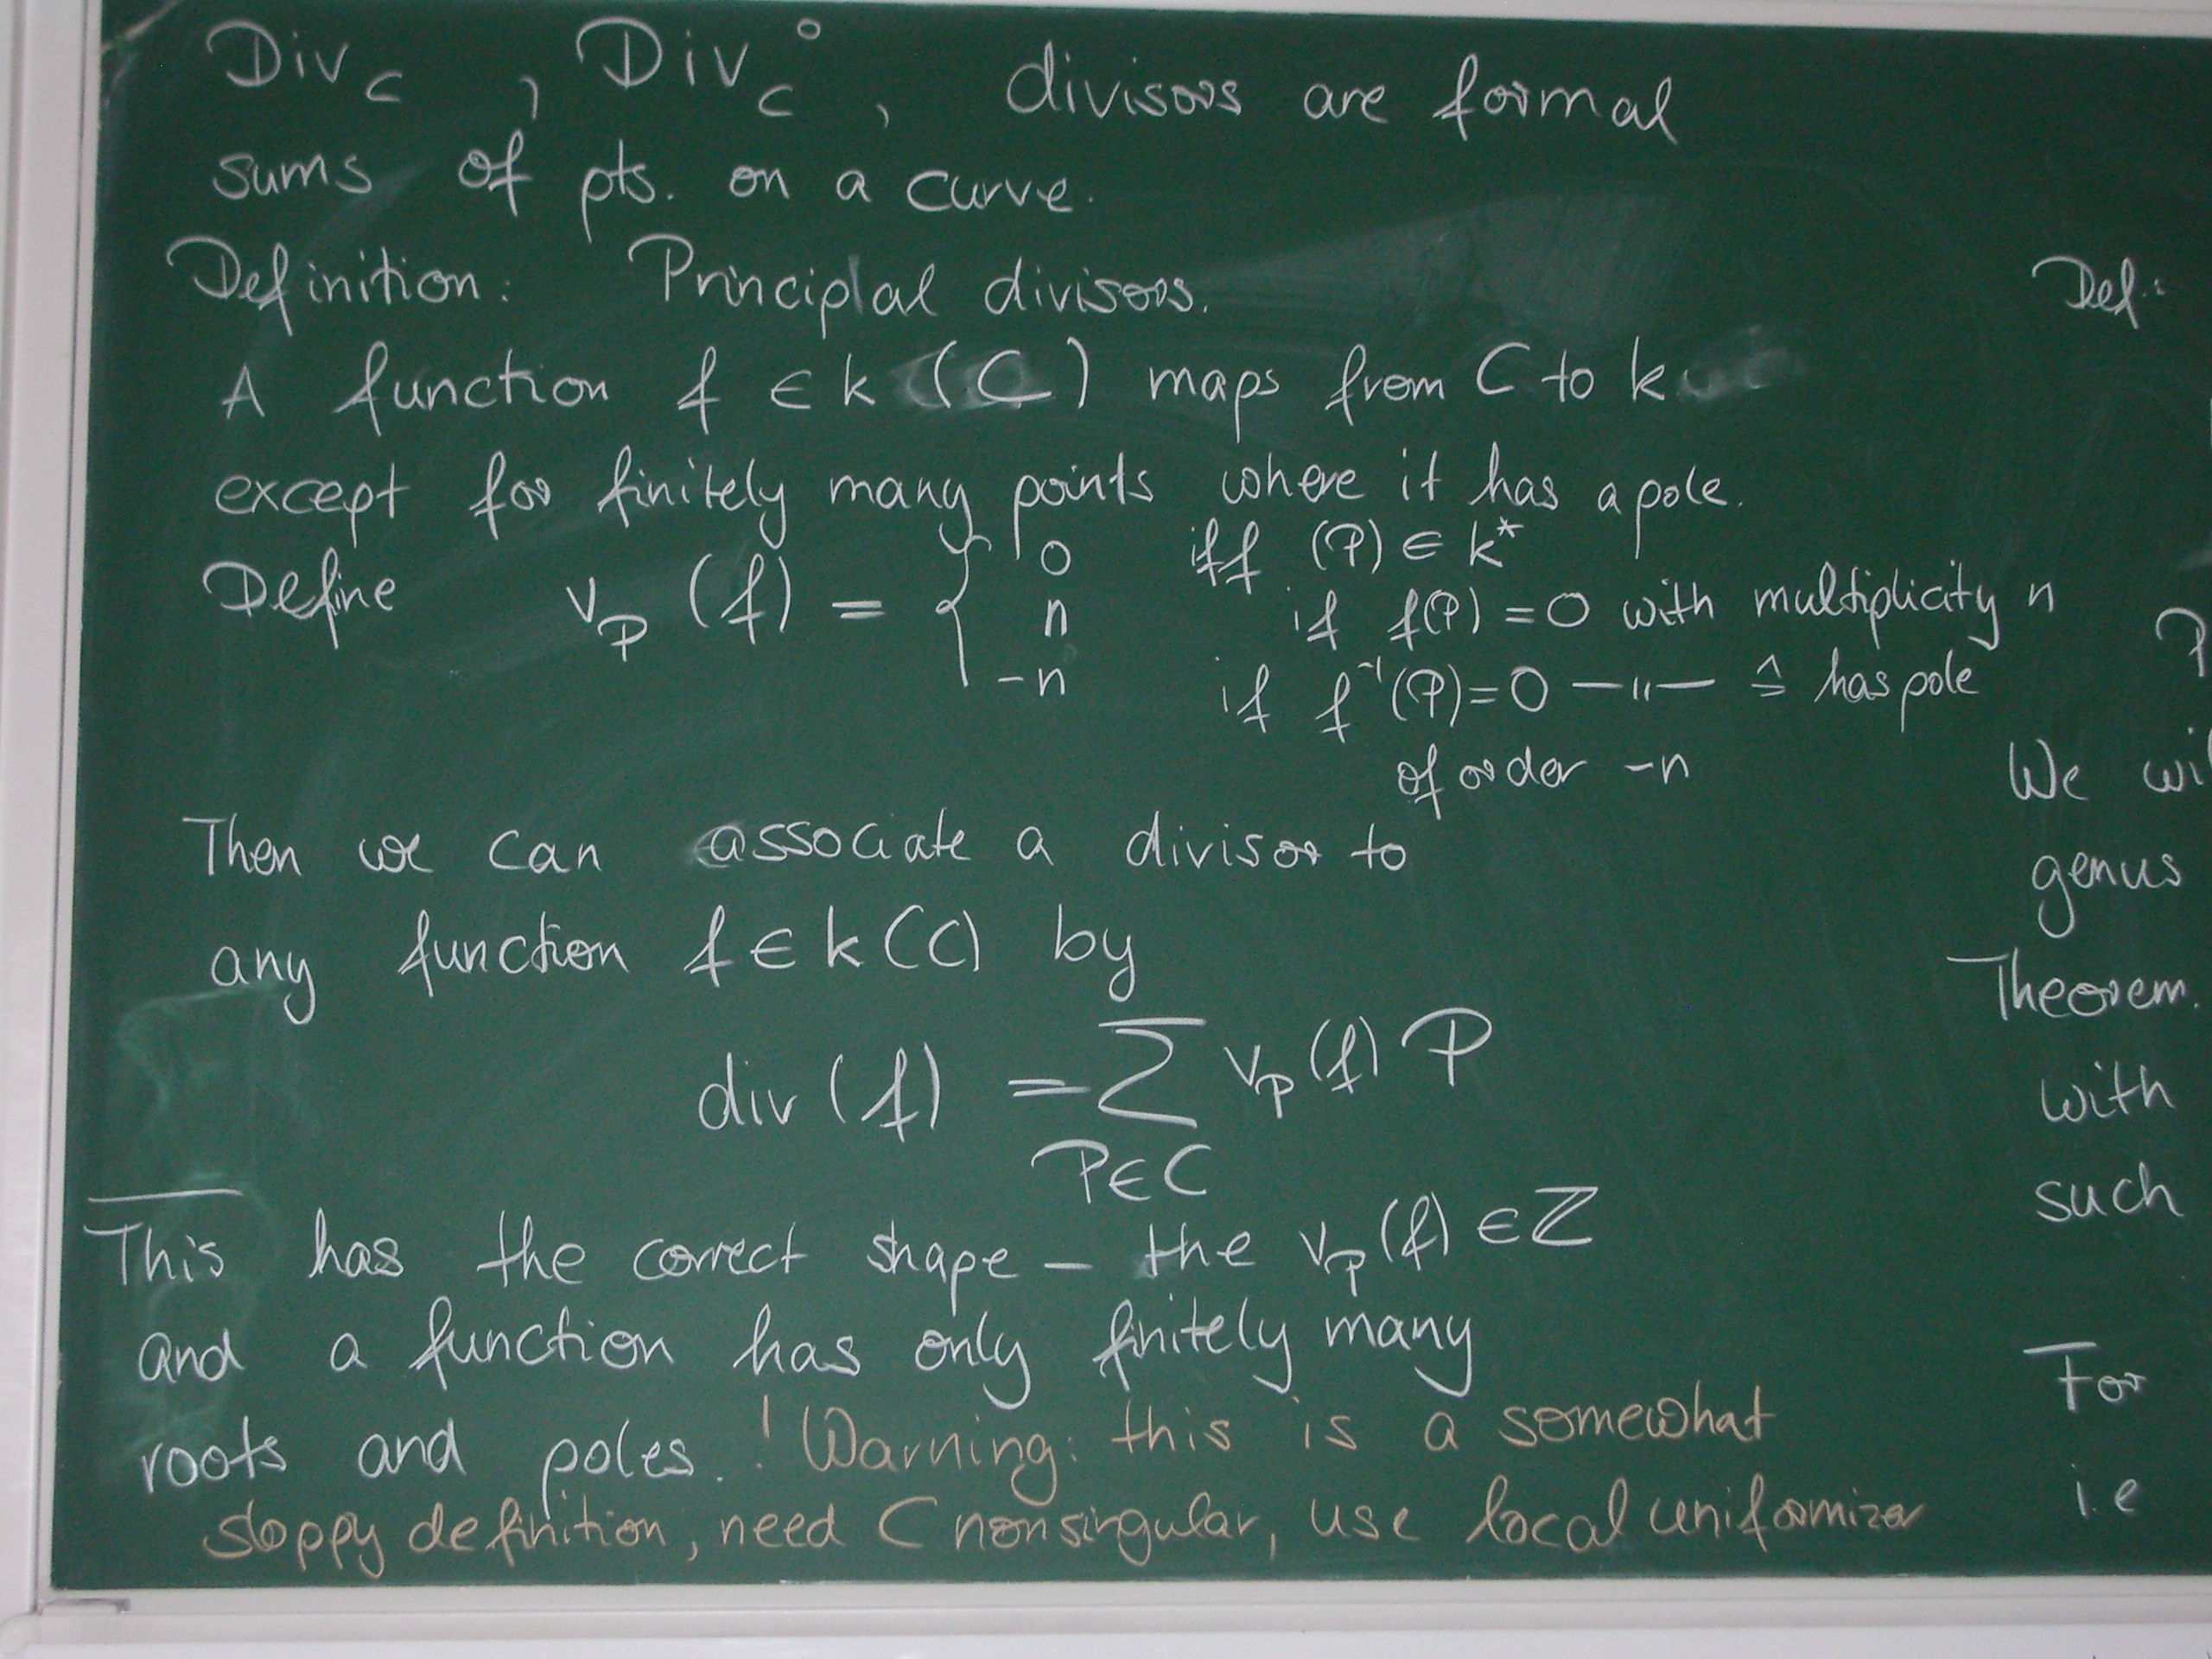 Div_C , Div_C° , divisors are formal
sums of pts. on a curve.
Definition: Principlal divisors.
A function f ∈ k (C) maps from C to k
except for finitely many points where it has a pole.
Define v_P (f) = { 0 iff (P) ∈ k*
n if f(P) = 0 with multiplicity n
-n if f⁻¹(P) = 0 —"— ≙ has pole
of order -n
Then we can associate a divisor to
any function f ∈ k(C) by
div (f) = Σ v_P (f) P
P∈C
This has the correct shape – the v_P (f) ∈ Z
and a function has only finitely many
roots and poles. ! Warning: this is a somewhat
sloppy definition, need C nonsingular, use local uniformizer
Def.:
P
We wi
genus
Theorem.
with
such
For
i.e